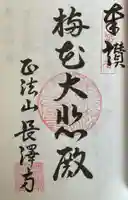 奉讃
梅花大悲殿
正法山 長澤寺